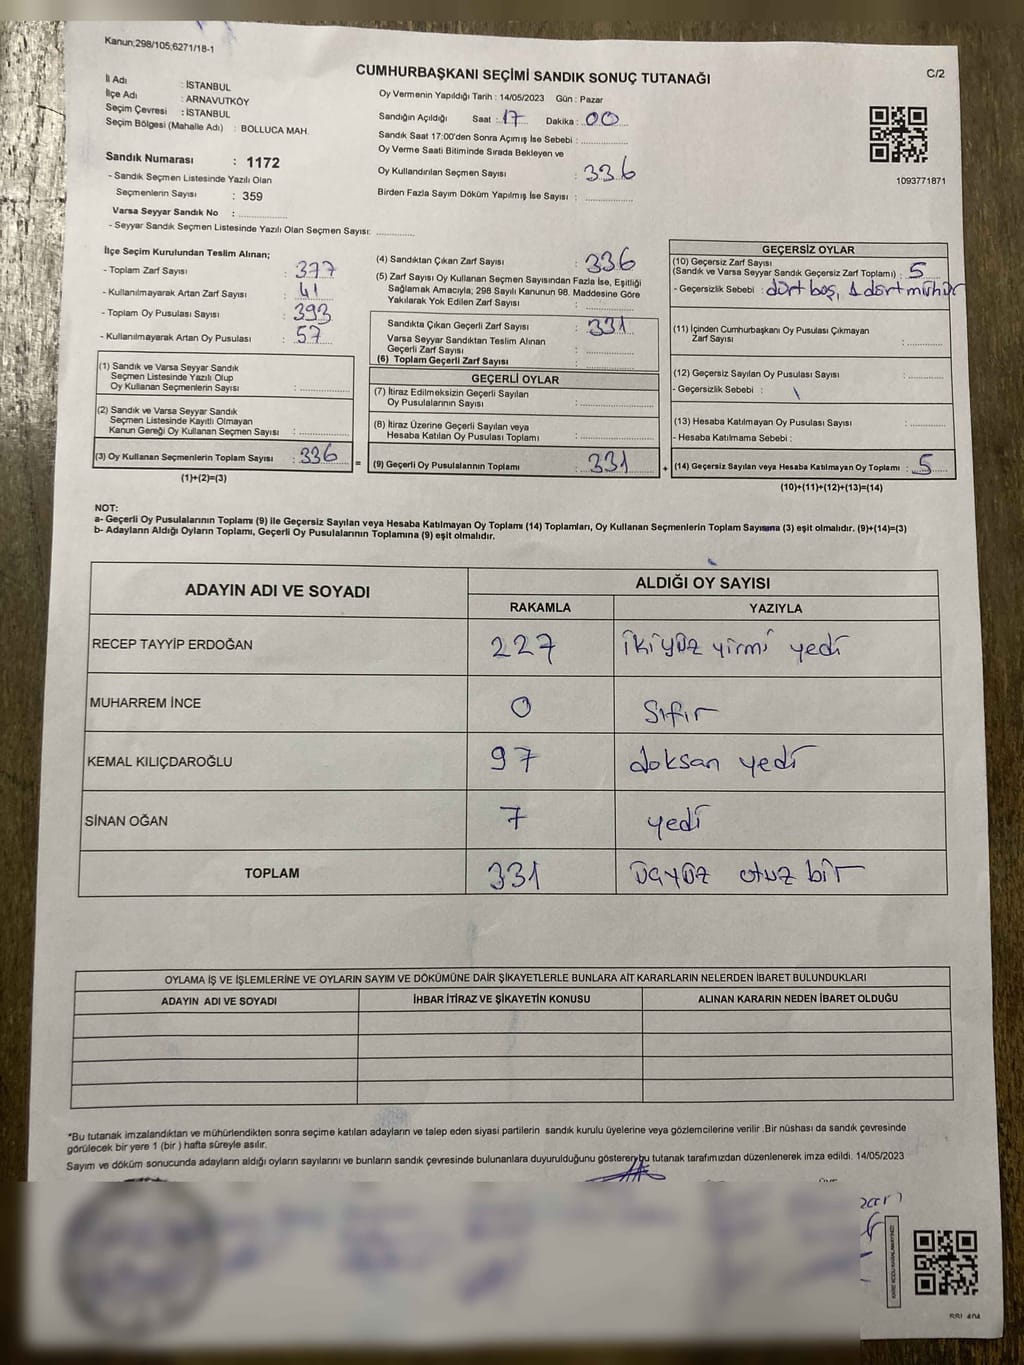 Kanun;298/105;6271/18-1
CUMHURBAŞKANI SEÇİMİ SANDIK SONUÇ TUTANAĞI
C/2
İl Adı : İSTANBUL
İlçe Adı : ARNAVUTKÖY
Seçim Çevresi : İSTANBUL
Seçim Bölgesi (Mahalle Adı) : BOLLUCA MAH.
Sandık Numarası : 1172
- Sandık Seçmen Listesinde Yazılı Olan
Seçmenlerin Sayısı : 359
Varsa Seyyar Sandık No :
- Seyyar Sandık Seçmen Listesinde Yazılı Olan Seçmen Sayısı:
Oy Vermenin Yapıldığı Tarih : 14/05/2023 Gün : Pazar
Sandığın Açıldığı Saat : 17 Dakika : 00
Sandık Saat 17:00'den Sonra Açımış İse Sebebi :
Oy Verme Saati Bitiminde Sırada Bekleyen ve
Oy Kullandırılan Seçmen Sayısı : 336
Birden Fazla Sayım Döküm Yapılmış İse Sayısı :
1093771871
İlçe Seçim Kurulundan Teslim Alınan;
- Toplam Zarf Sayısı : 377
- Kullanılmayarak Artan Zarf Sayısı : 41
- Toplam Oy Pusulası Sayısı : 393
- Kullanılmayarak Artan Oy Pusulası : 57
(1) Sandık ve Varsa Seyyar Sandık
Seçmen Listesinde Yazılı Olup
Oy Kullanan Seçmenlerin Sayısı :
(2) Sandık ve Varsa Seyyar Sandık
Seçmen Listesinde Kayıtlı Olmayan
Kanun Gereği Oy Kullanan Seçmen Sayısı :
(3) Oy Kullanan Seçmenlerin Toplam Sayısı : 336
(1)+(2)=(3)
=
(4) Sandıktan Çıkan Zarf Sayısı : 336
(5) Zarf Sayısı Oy Kullanan Seçmen Sayısından Fazla İse, Eşitliği
Sağlamak Amacıyla; 298 Sayılı Kanunun 98. Maddesine Göre
Yakılarak Yok Edilen Zarf Sayısı :
Sandıkta Çıkan Geçerli Zarf Sayısı : 331
Varsa Seyyar Sandıktan Teslim Alınan
Geçerli Zarf Sayısı :
(6) Toplam Geçerli Zarf Sayısı :
GEÇERLİ OYLAR
(7) İtiraz Edilmeksizin Geçerli Sayılan
Oy Pusulalarının Sayısı :
(8) İtiraz Üzerine Geçerli Sayılan veya
Hesaba Katılan Oy Pusulası Toplamı :
(9) Geçerli Oy Pusulalarının Toplamı : 331
+
GEÇERSİZ OYLAR
(10) Geçersiz Zarf Sayısı
(Sandık ve Varsa Seyyar Sandık Geçersiz Zarf Toplamı) : 5
- Geçersizlik Sebebi : dört boş, 1 dört mühür
(11) İçinden Cumhurbaşkanı Oy Pusulası Çıkmayan
Zarf Sayısı :
(12) Geçersiz Sayılan Oy Pusulası Sayısı :
- Geçersizlik Sebebi :
(13) Hesaba Katılmayan Oy Pusulası Sayısı :
- Hesaba Katılmama Sebebi :
(14) Geçersiz Sayılan veya Hesaba Katılmayan Oy Toplamı : 5
(10)+(11)+(12)+(13)=(14)
NOT:
a- Geçerli Oy Pusulalarının Toplamı (9) ile Geçersiz Sayılan veya Hesaba Katılmayan Oy Toplamı (14) Toplamları, Oy Kullanan Seçmenlerin Toplam Sayısına (3) eşit olmalıdır. (9)+(14)=(3)
b- Adayların Aldığı Oyların Toplamı, Geçerli Oy Pusulalarının Toplamına (9) eşit olmalıdır.
ADAYIN ADI VE SOYADI
ALDIĞI OY SAYISI
RAKAMLA YAZIYLA
RECEP TAYYİP ERDOĞAN 227 ikiyüz yirmi yedi
MUHARREM İNCE 0 sıfır
KEMAL KILIÇDAROĞLU 97 doksan yedi
SİNAN OĞAN 7 yedi
TOPLAM 331 üçyüz otuz bir
OYLAMA İŞ VE İŞLEMLERİNE VE OYLARIN SAYIM VE DÖKÜMÜNE DAİR ŞİKAYETLERLE BUNLARA AİT KARARLARIN NELERDEN İBARET BULUNDUKLARI
ADAYIN ADI VE SOYADI İHBAR İTİRAZ VE ŞİKAYETİN KONUSU ALINAN KARARIN NEDEN İBARET OLDUĞU
*Bu tutanak imzalandıktan ve mühürlendikten sonra seçime katılan adayların ve talep eden siyasi partilerin sandık kurulu üyelerine veya gözlemcilerine verilir .Bir nüshası da sandık çevresinde
görülecek bir yere 1 (bir ) hafta süreyle asılır.
Sayım ve döküm sonucunda adayların aldığı oyların sayılarını ve bunların sandık çevresinde bulunanlara duyurulduğunu gösteren bu tutanak tarafımızdan düzenlenerek imza edildi. 14/05/2023